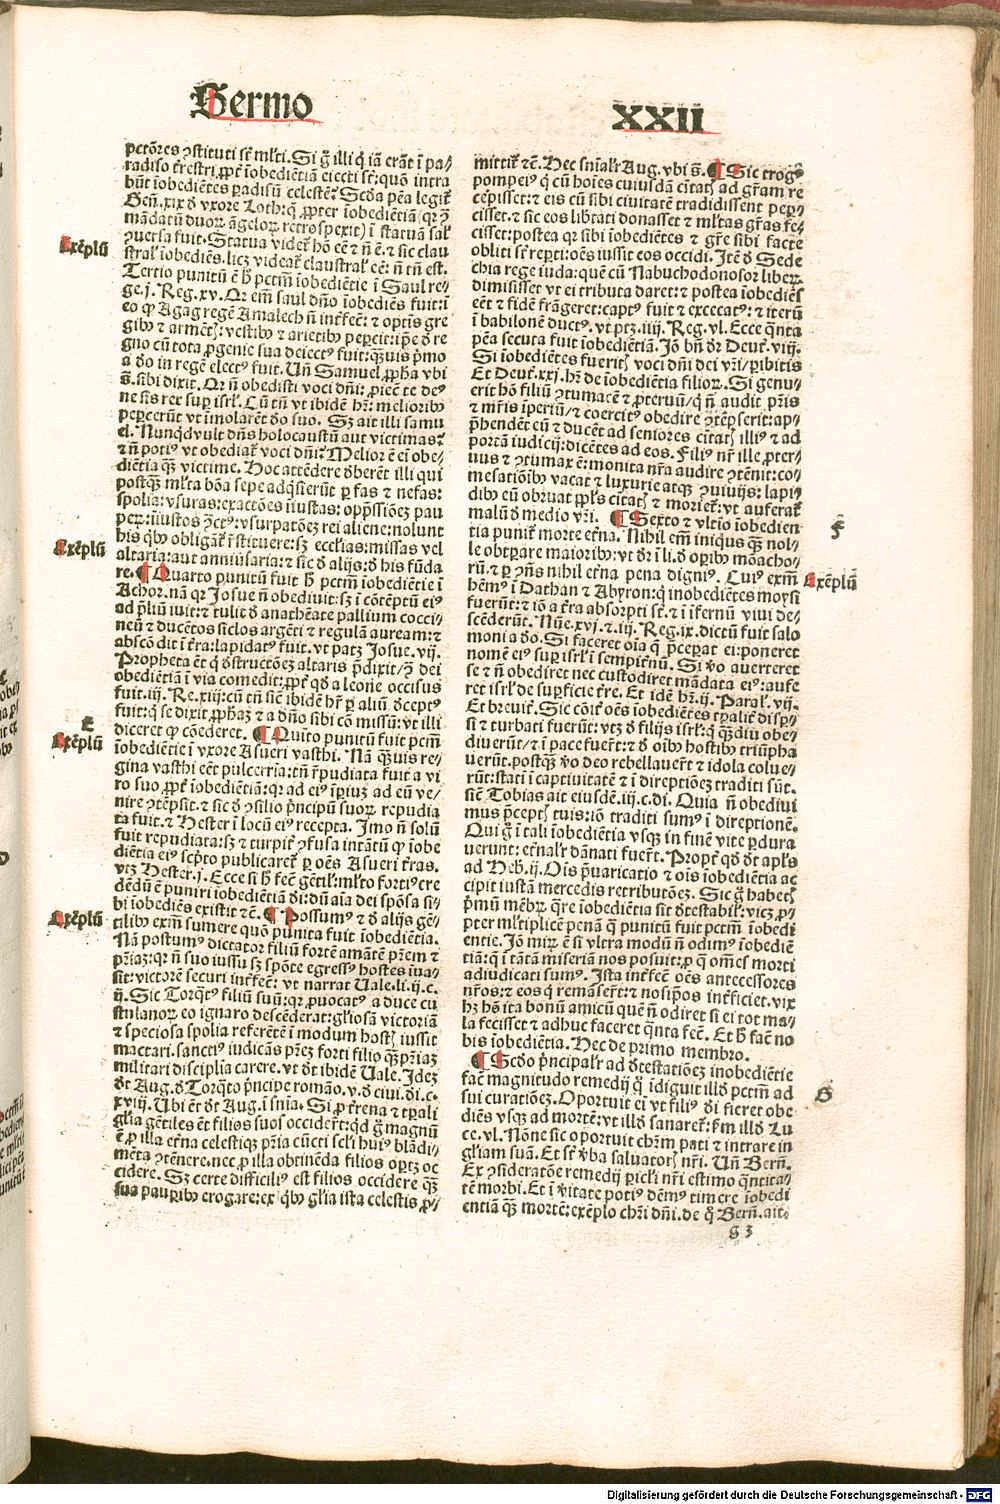 Sermo
XXII
pctōres ɔstituti st̄ ml̓ti. Si g̊ illi q̇ iā erāt ī pa/
radiso tr̄estri ꝓpt̄ īobediētiā eiecti st̄: quō intra
būt īobediētes ꝑadisū celestē? Scd̓a pēa legit̓
Geñ. xix đ vxore Loth: q̄ ꝓpter īobediētiā (qꝛ ꝯ̄
mādatū duoꝝ āgeloꝝ retrospexit) ī statuā sal̓
ɔuersa fuit. Statua videt̓ hō eē ⁊ ñ ē. ⁊ sic clau
stral̓ īobediēs. licꝫ videat̓ claustral̓ eē: ñ tñ est.
Tertio punitū ē h̄ pctm̄ īobediētie ī Saul re/
ge. j. Reg. xv. Qꝛ em̄ saul dño īobediēs fuit: ī
eo ꝙ Agag regē Amalech ñ int̓fec̄: ⁊ optīs gre
gibꝰ ⁊ armētꝭ: vestibꝰ ⁊ arietibꝰ peꝑcit: ip̄e đ re
gno cū tota ꝓgenie sua deiectꝰ fuit: q̄uis p̓mo
a đo in regē electꝰ fuit. Vñ Samuel ꝓph̄a vbi
s̄. sibi dixit. Qꝛ ñ obedisti voci dñi: ꝓiecit te deꝰ
ne sis rex suꝑ isrl̓. Cū tñ vt ibidē hr̄: melioribꝰ
peꝑcerūt vt īmolarēt đo suo. Sꝫ ait illi samu
el. Nunqd̓vult dñs holocaustū aut victimas?
⁊ ñ potiꝰ vt obediat̓ voci dñi? Melior ē ei obe/
diētia q̄ꝫ victime. Hoc attēdere đberēt illi qui
postq̄ꝫ ml̓ta bōa sepe adq̇sierūt ꝑ fas ⁊ nefas:
spolia: vsuras: exactōes iiustas: opp̄ssiōeꝫ pau
peꝝ: iiustos ꝯ̄ctꝰ: vsurpatōeꝫ rei aliene: nolunt
his q̇bꝰ obligāt̓ r̄stituere: sꝫ eccl̓ias: missas vel
altaria: aut anniu̓saria: ⁊ sic đ alijs: đ his fūda
re. ¶ Quarto punitū fuit h̄ pctm̄ īobediētie ī
Achor. nā qꝛ Josue ñ obediuit: sꝫ ī cōtēptū eiꝰ
ad p̄liū iuit: ⁊ tulit đ anathēate pallium cocci/
neū ⁊ ducētos siclos argēti ⁊ regulā auream: ⁊
abscōdit ī tr̄a: lapidatꝰ fuit. vt patꝫ Josue. vij.
Propheta ēt q̇ đstructōeꝫ altaris p̄dixit/ ꝯ̄ dei
obediētiā ī via comedit: ꝓpt̄ qđ a leone occisus
fuit. iij. Re. xiij: cū tñ sic̄ ibidē hr̄ ꝑ aliū đceptꝰ
fuit: q̇ se dixit ꝓph̄aꝫ ⁊ a dño sibi cō missū: vt illi
diceret ꝙ cōederet. ¶ Quīto punitū fuit pctm̄
īobediētie ī vxore Asueri vasthi. Nā q̄uis re/
gina vasthi eēt pulcerria: tñ r̄pudiata fuit a vi
ro suo ꝓpt̄ īobediētiā: qꝛ ad eiꝰ īꝑiuꝫ ad eū ve/
nire ɔtēpsit. ⁊ sic đ ɔsilio p̓ncipū suoꝝ repudia
ta fuit. ⁊ Hester ī locū eiꝰ recepta. Jmo ñ solū
fuit repudiata: sꝫ ⁊ turpit̓ ɔfusa intātū ꝙ īobe
diētia eiꝰ scp̓to publicaret̓ ꝑ oēs Asueri tr̄as.
vtꝫ Hester. j. Ecce si h̄ fec̄ gētil̓: ml̓to fortiꝰ cre
dēdū ē puniri īobediētiā đi: dū aīa dei spōsa si/
bi īobediēs existit ⁊c̄. ¶ Possumꝰ ⁊ đ alijs gē/
tilibꝰ exm̄ sumere quō punita fuit īobediētia.
Nā postumꝰ dictator filiū fortē amātē p̄rem ⁊
p̄riaꝫ: qꝛ ñ suo iussu sꝫ spōte egressꝰ hostes īua/
sit: victorē securi int̓fec̄: vt narrat Uale. li. ij. c.
ij. Sic Torq̄tꝰ filiū suū: qꝛ ꝓuocatꝰ a duce cu
stulanoꝝ eo ignaro descēderat: gl̓iosā victoriā
⁊ speciosa spolia referētē ī modum hostꝭ iussit
mactari. sanctiꝰ iudicās p̄reꝫ forti filio q̄ꝫ p̄riaꝫ
militari disciplia carere. vt đt ibidē Uale. Jdeꝫ
đt Aug. đ Torq̄to p̓ncipe romāo. v. đ ciui. đi. c.
xviij. Ubi ēt đt Aug. ī sn̄ia. Si ꝓ tr̄ena ⁊ tꝑali
gl̓ia gētiles ēt filios suos occider̄t: qđ g̊ magnū
ē ꝓ illa et̓na celestiqꝫ p̄ria cūcti scl̓i huiꝰ blādi/
mēta ɔtēnere. nec ꝓ illa obtinēda filios oꝑtꝫ oc
cidere. Sꝫ certe difficiliꝰ est filios occidere q̄ꝫ
sua pauꝑibꝰ erogare: ex q̇bꝰ gl̓ia ista celestis ꝓ/
Exēplū
Exēplū
E
Exēplū
Exēplū
mittit̓ ⁊c̄. Hec sn̄ialr̓ Aug. vbi s̄. ¶ Sic trogꝰ
pompeiꝰ q̇ cū hoīes cuiusdā ciūtatꝭ ad gr̄am re
cepisset: ⁊ eis cū sibi ciuitatē tradidissent peꝑ/
cisset. ⁊ sic eos lib̓tati donasset ⁊ ml̓tas gr̄as fe/
cisset: postea qꝛ sibi īobediētes ⁊ gr̄e sibi facte
obliti st̄ reꝑti: oēs iussit eos occidi. Jtē đ Sede
chia rege iuda: quē cū Nabuchodonosor liberꝝ
dimisisset vt ei tributa daret: ⁊ postea īobediēs
eēt ⁊ fidē frāgeret: captꝰ fuit ⁊ excecatꝰ: ⁊ iterū
ī babilonē ductꝰ. vt ptꝫ. iiij. Reg. vl. Ecce q̄nta
pēa secuta fuit īobediētiā. Jō bñ đr Deut̓. viij.
Si īobediētes fueritꝭ voci dñi dei vr̄i/ ꝑibitis
Et Deut̓. xxj. hꝫ de īobediētia filioꝝ. Si genu/
erit hō filiū ɔtumacē ⁊ ꝓteruū/ q̇ ñ audit p̄ris
⁊ mr̄is īperiū/ ⁊ coercitꝰ obedire ɔtēpserit: ap/
p̄hendēt eū ⁊ ducēt ad seniores ciūtatꝭ illiꝰ ⁊ ad
portā iudicij: dicētes ad eos. Filiꝰ nr̄ ille ꝓter/
uus ⁊ ɔtumax ē: monita nr̄a audire ɔtēnit: co/
mesatiōibꝰ vacat ⁊ luxurie atqꝫ ɔuiuijs: lapi/
dibꝰ eū obruat ppl̓s ciūtatꝭ ⁊ moriet̓: vt auferat̓
malū đ medio vr̄i. ¶ Sexto ⁊ vltio īobedien
tia punit̓ morte et̓na. Nihil em̄ iniqus q̄ꝫ nol/
le obtꝑare maioribꝰ: vt đr ī li. đ oꝑibꝰ mōacho/
rū. ⁊ ꝑ ɔñs nihil et̓na pena digniꝰ. Cuiꝰ exm̄
hēmꝰ ī Dathan ⁊ Abyron: q̇ inobediētes moysi
fuerūt: ⁊ iō a tr̄a absorpti st̄: ⁊ ī īfernū viui de/
scēderūt. Nūe. xvj. ⁊. iij. Reg. ix. dictū fuit salo
moni a đo. Si faceret oīa q̄ p̄ceꝑat ei: poneret
nomē eiꝰ suꝑ isrl̓ ī sempit̓nū. Si ṽo auerteret
se ⁊ ñ obediret nec custodiret mādata eiꝰ: aufe
ret isrl̓ de suꝑficie tr̄e. Et idē hr̄. ij. Paral̓. vij.
Et breuit̓. Sic cōit̓ oēs īobediētes tꝑalit̓ disꝑ/
si ⁊ turbati fuerūt: vtꝫ đ filijs isrl̓: q̇ q̄ꝫdiu obe/
diuerūt/ ⁊ ī pace fuer̄t: ⁊ đ oībꝰ hostibꝰ triūpha
uerūt. postq̄ꝫ ṽo deo rebellauer̄t ⁊ idola colue/
rūt: stati ī captiuitatē ⁊ ī direptiōeꝫ traditi sūt.
sic̄ Tobias ait eiusdē. iij. c. di. Quia ñ obediui
mus p̄ceptꝭ tuis: iō traditi sumꝰ ī direptionē.
Qui g̊ ī tali īobediētia vsqꝫ in finē vite ꝑdura
uerunt: et̓nalr̓ dānati fuer̄t. Propt̓ qđ đt apl̓s
ad Heb̓. ij. Oīs p̄uaricatio ⁊ oīs īobediētia ac
cipit iustā mercedis retributōeꝫ. Sic g̊ habetꝭ
p̓mū mēbꝝ q̄re īobediētia sit đtestabil̓: vicꝫ ꝓ/
pter ml̓tiplicē penā q̄ punitū fuit pctm̄ īobedi
entie. Jō miꝝ ē si vltra modū ñ odimꝰ īobediē
tiā: q̄ ī tātā miseriā nos posuit: ꝓ q̄ om̄es morti
adiudicati sumꝰ. Jsta int̓fec̄ oēs antecessores
nr̄os: ⁊ eos q̇ remāser̄t: ⁊ nosip̄os int̓ficiet. vix
hꝫ hō ita bonū amicū quē ñ odiret si ei tot ma/
la fecisset ⁊ adhuc faceret q̄nta fec̄. Et h̄ fac̄ no
bis īobediētia. Hec de primo membro.
¶ Scd̓o p̓ncipalr̓ ad đtestatiōeꝫ inobediētie
fac̄ magnitudo remedij q̄ īdiguit illđ pctm̄ ad
sui curatiōeꝫ. Oportuit ei vt filiꝰ đi fieret obe
diēs vsqꝫ ad mortē: vt illđ sanaret̓: fm̄ illđ Lu
ce. vl. Nōne sic oportuit chr̄m pati ⁊ intrare in
gl̓iam suā. Et st̄ v̓ba saluatorꝭ nr̄i. Uñ Berñ.
Ex ɔsideratōe remedij ꝑicl̓i nr̄i estimo q̄ntita/
tē morbi. Et ī v̓itate potiꝰ dēmꝰ timere īobedi
entiā q̄ꝫ mortē: exēplo chr̄i dñi. de q̊ Berñ. ait.
F
Exēplū
G
g 3
Digitalisierung gefördert durch die Deutsche Forschungsgemeinschaft - DFG